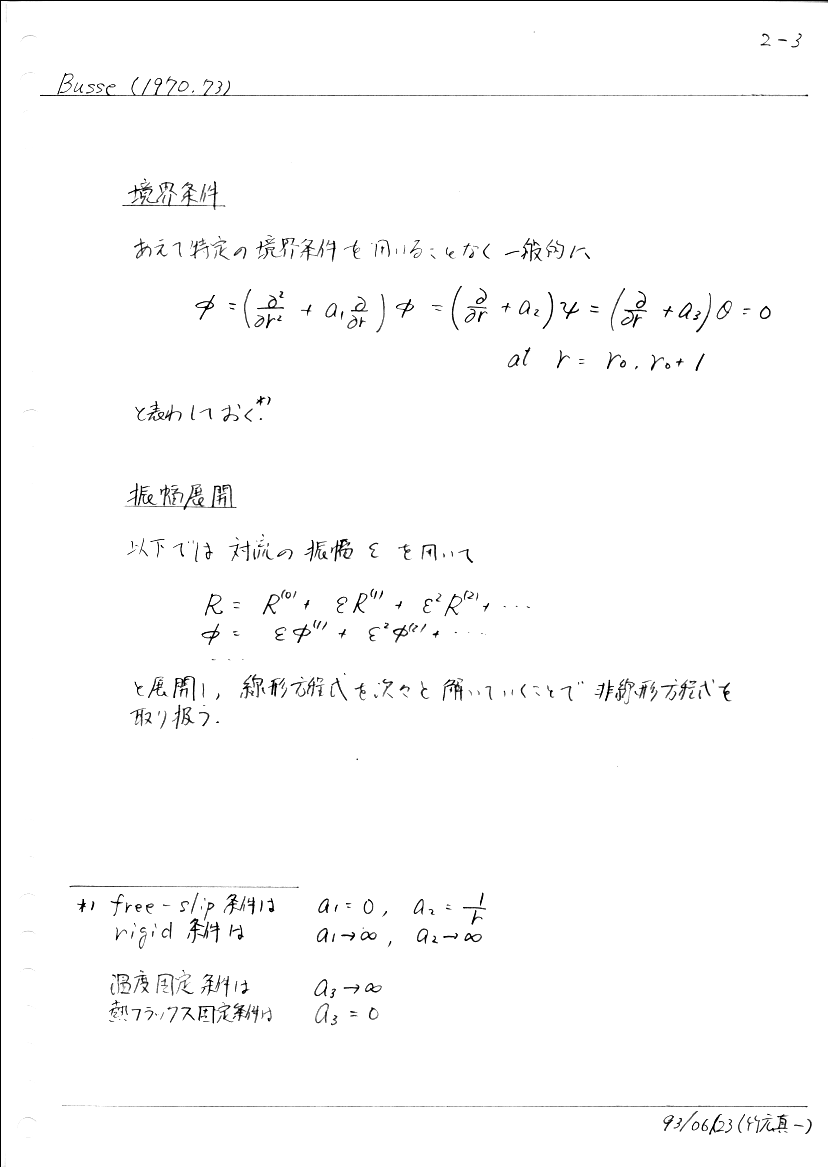 2-3
Busse (1970.73)
境界条件
あえて特定の境界条件を用いることなく一般的に、
φ = (∂²/∂r² + a₁ ∂/∂r) φ = (∂/∂r + a₂) ψ = (∂/∂r + a₃) θ = 0
at r = r₀, r₀+1
と表わしておく.*)
振幅展開
以下では 対流の 振幅 ε を用いて
R = R⁽⁰⁾ + εR⁽¹⁾ + ε²R⁽²⁾ + ...
φ = εφ⁽¹⁾ + ε²φ⁽²⁾ + ...
...
と展開し, 線形方程式を次々と 解いていくことで 非線形方程式を
取り扱う.
*) free-slip 条件は a₁ = 0, a₂ = 1/r
rigid 条件は a₁→∞, a₂→∞
温度固定条件は a₃→∞
熱フラックス固定条件は a₃ = 0
93/06/23 (竹広真一)